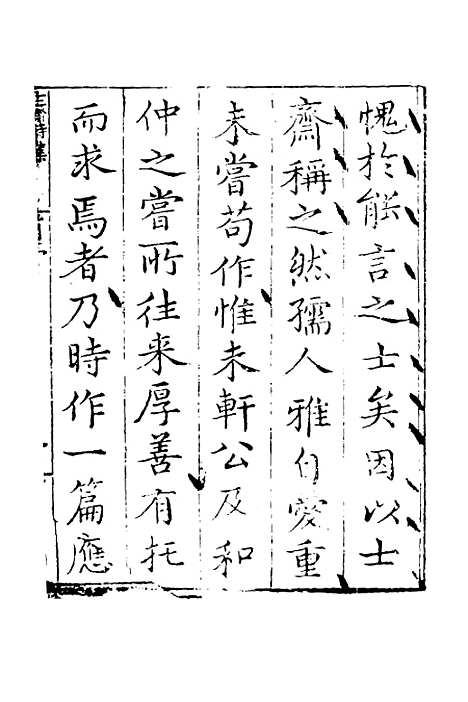 愧於能言之士矣因以士
齋稱之然孺人雅自愛重
未嘗苟作惟未軒公及和
仲之嘗所往来厚善有托
而求焉者乃時作一篇應
士齋詩集